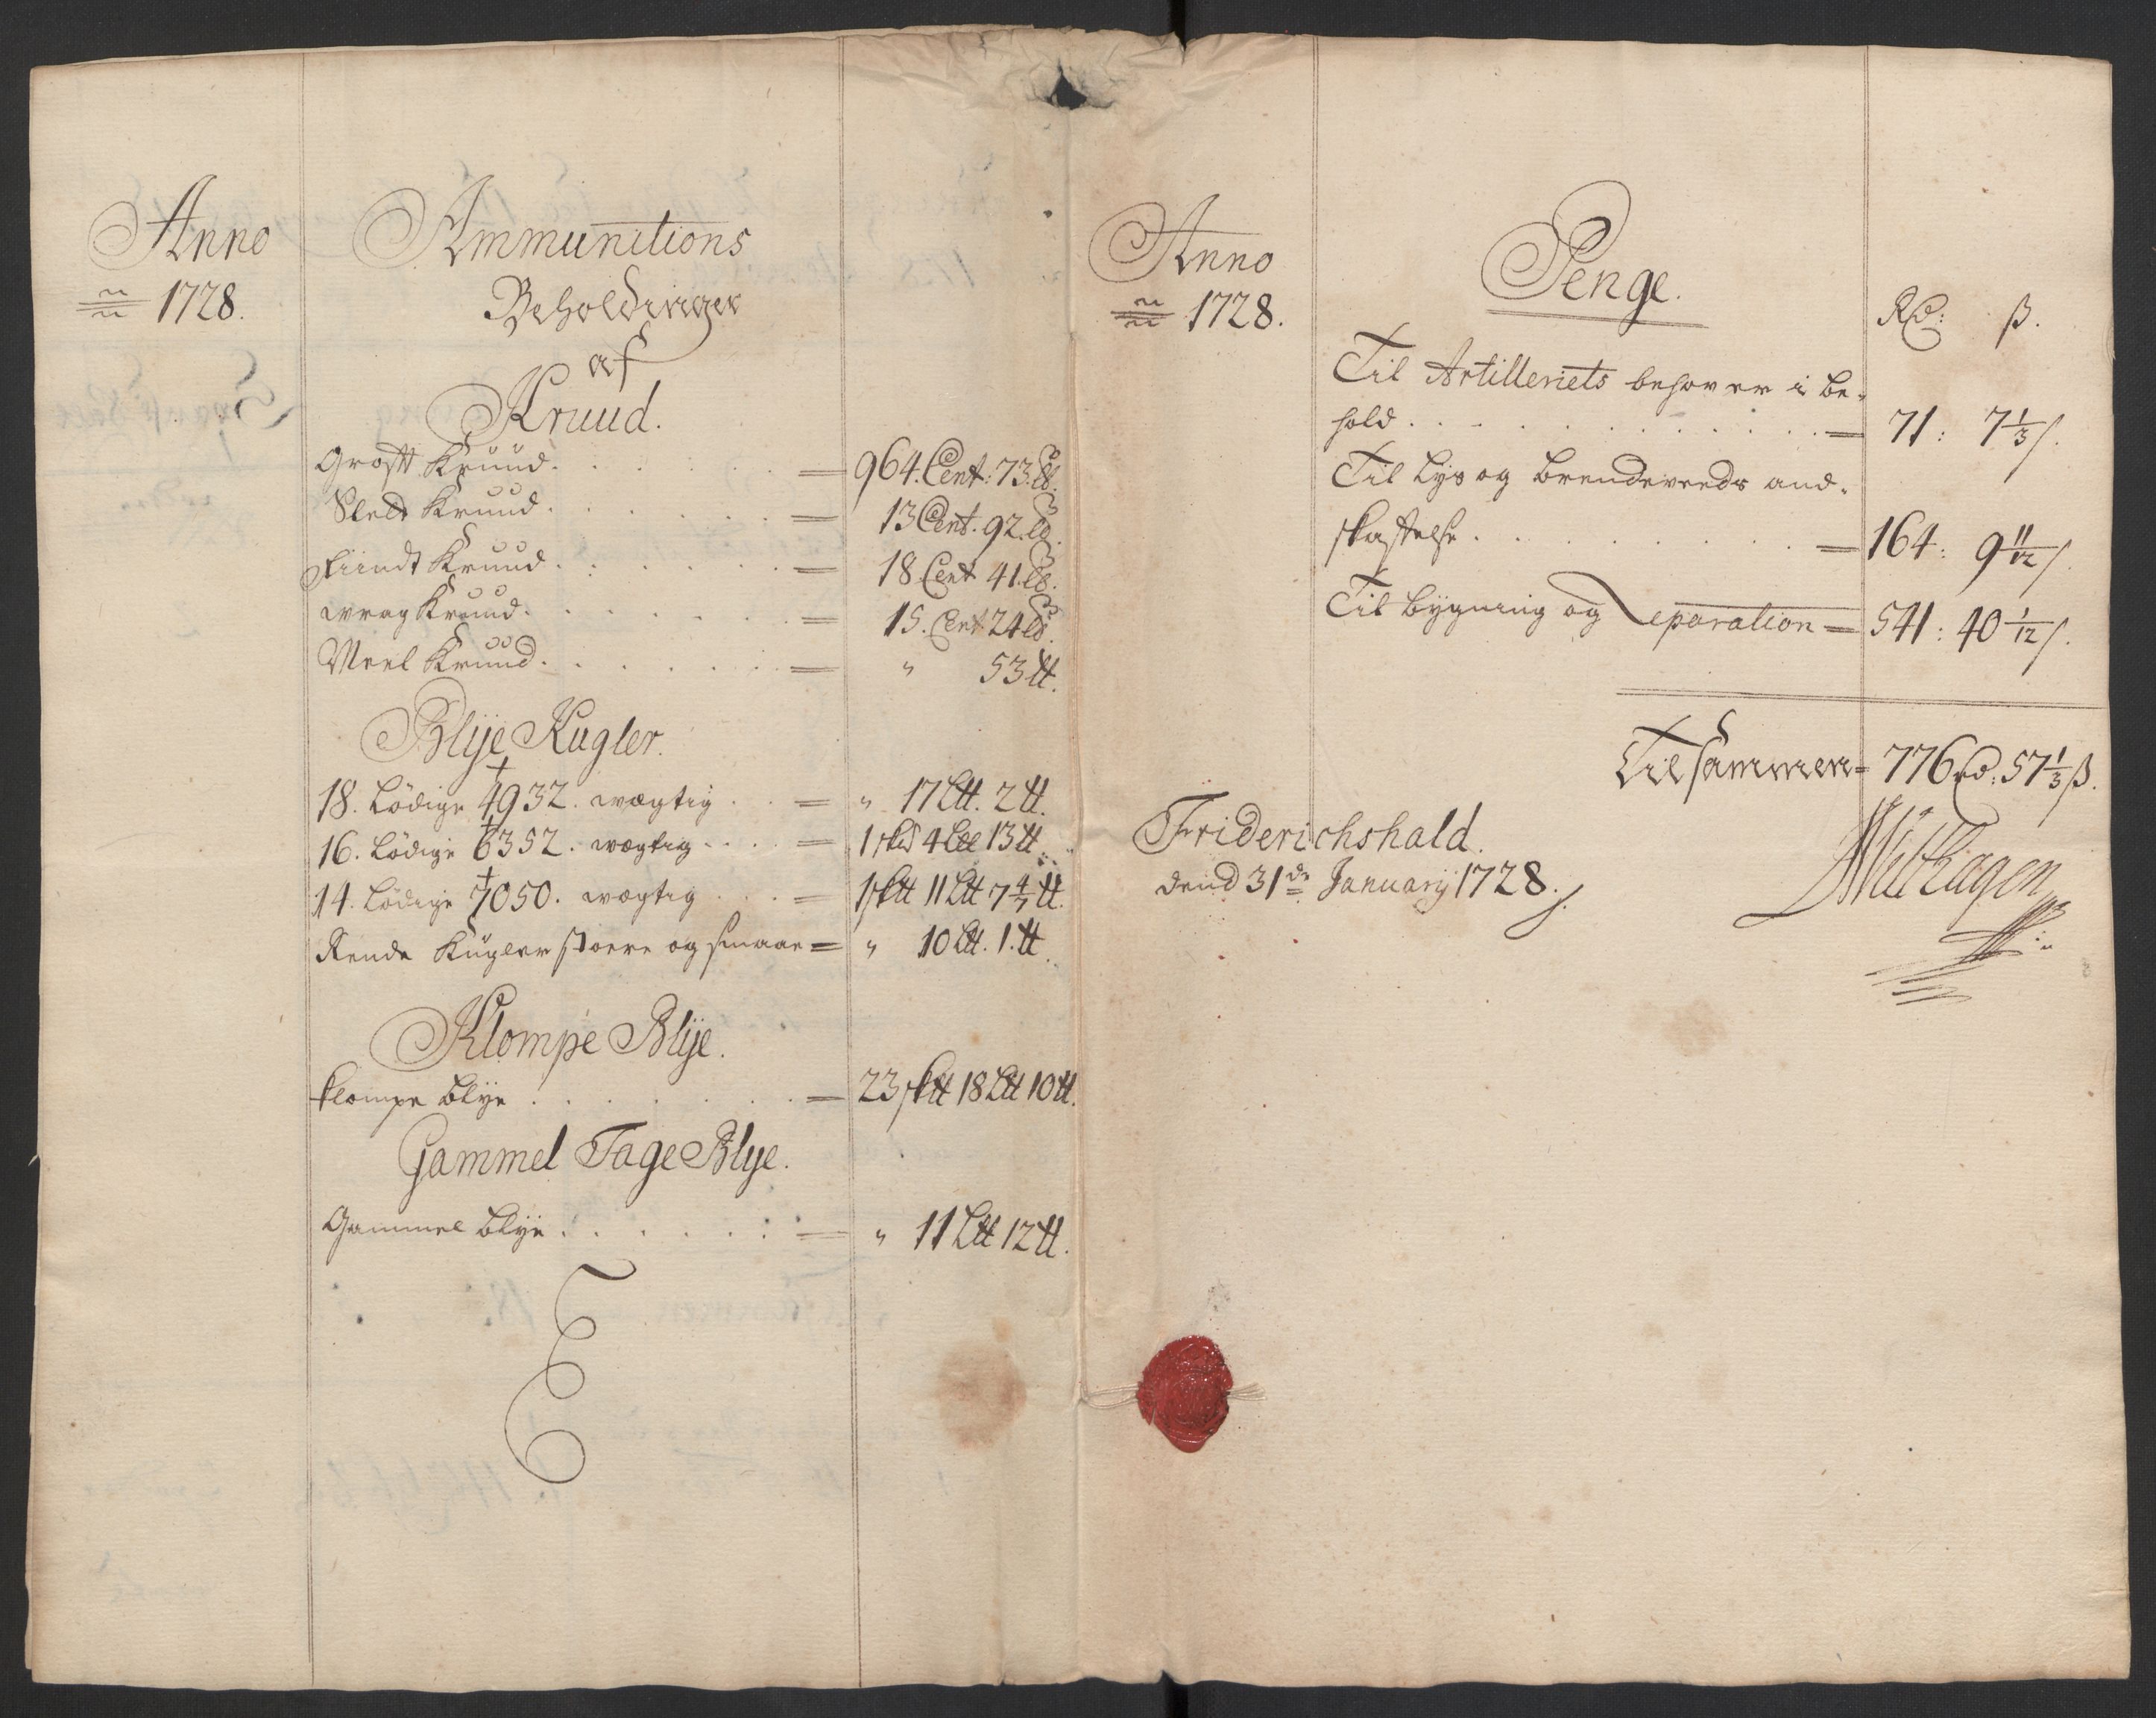 Anno
1728.
Ammunitions
Beholdninger
af
Kruud.
Groft Kruud . . . . . = 964. Cent: 73. lb.
Slett Kruud . . . . . = 13 Cent. 92. lb.
Fiindt Kruud . . . . . = 18. Cent 41. lb.
wrag Kruud . . . . . = 15. Cent 24 lb.
Meel Kruud . . . . . = " 53 ℔.
Blye Kugler.
18. Lödige 4932. wægtig . . = " 17 L℔. 2 ℔.
16. Lödige 6352. wægtig . . . = 1 sk℔ 4 L℔ 13 ℔.
14. Lödige 7050. wægtig . . = 1 sk℔ 11 L℔ 7 4/7 ℔.
Rende Kugler stoere og smaae = " 10 L℔. 1. ℔.
Klompe Blye.
klompe blye . . . . . = 23 sk℔ 18 L℔ 10 ℔.
Gammel Tage Blye.
Gammel blye . . . . . = " 11 L℔ 12 ℔.
Anno
1728.
Penge.
Rd: ß.
Til Artilleriets behov er i be-
hold . . . . . = 71: 7 1/3 ß.
Til Lys og brendeveeds and-
skaffelse . . . . . = 164: 9 11/12 ß.
Til bygning og Reparation = 541: 40 1/12 ß.
Tilsammen = 776 rd: 57 1/3 ß.
Friderichshald.
dend 31de January 1728.